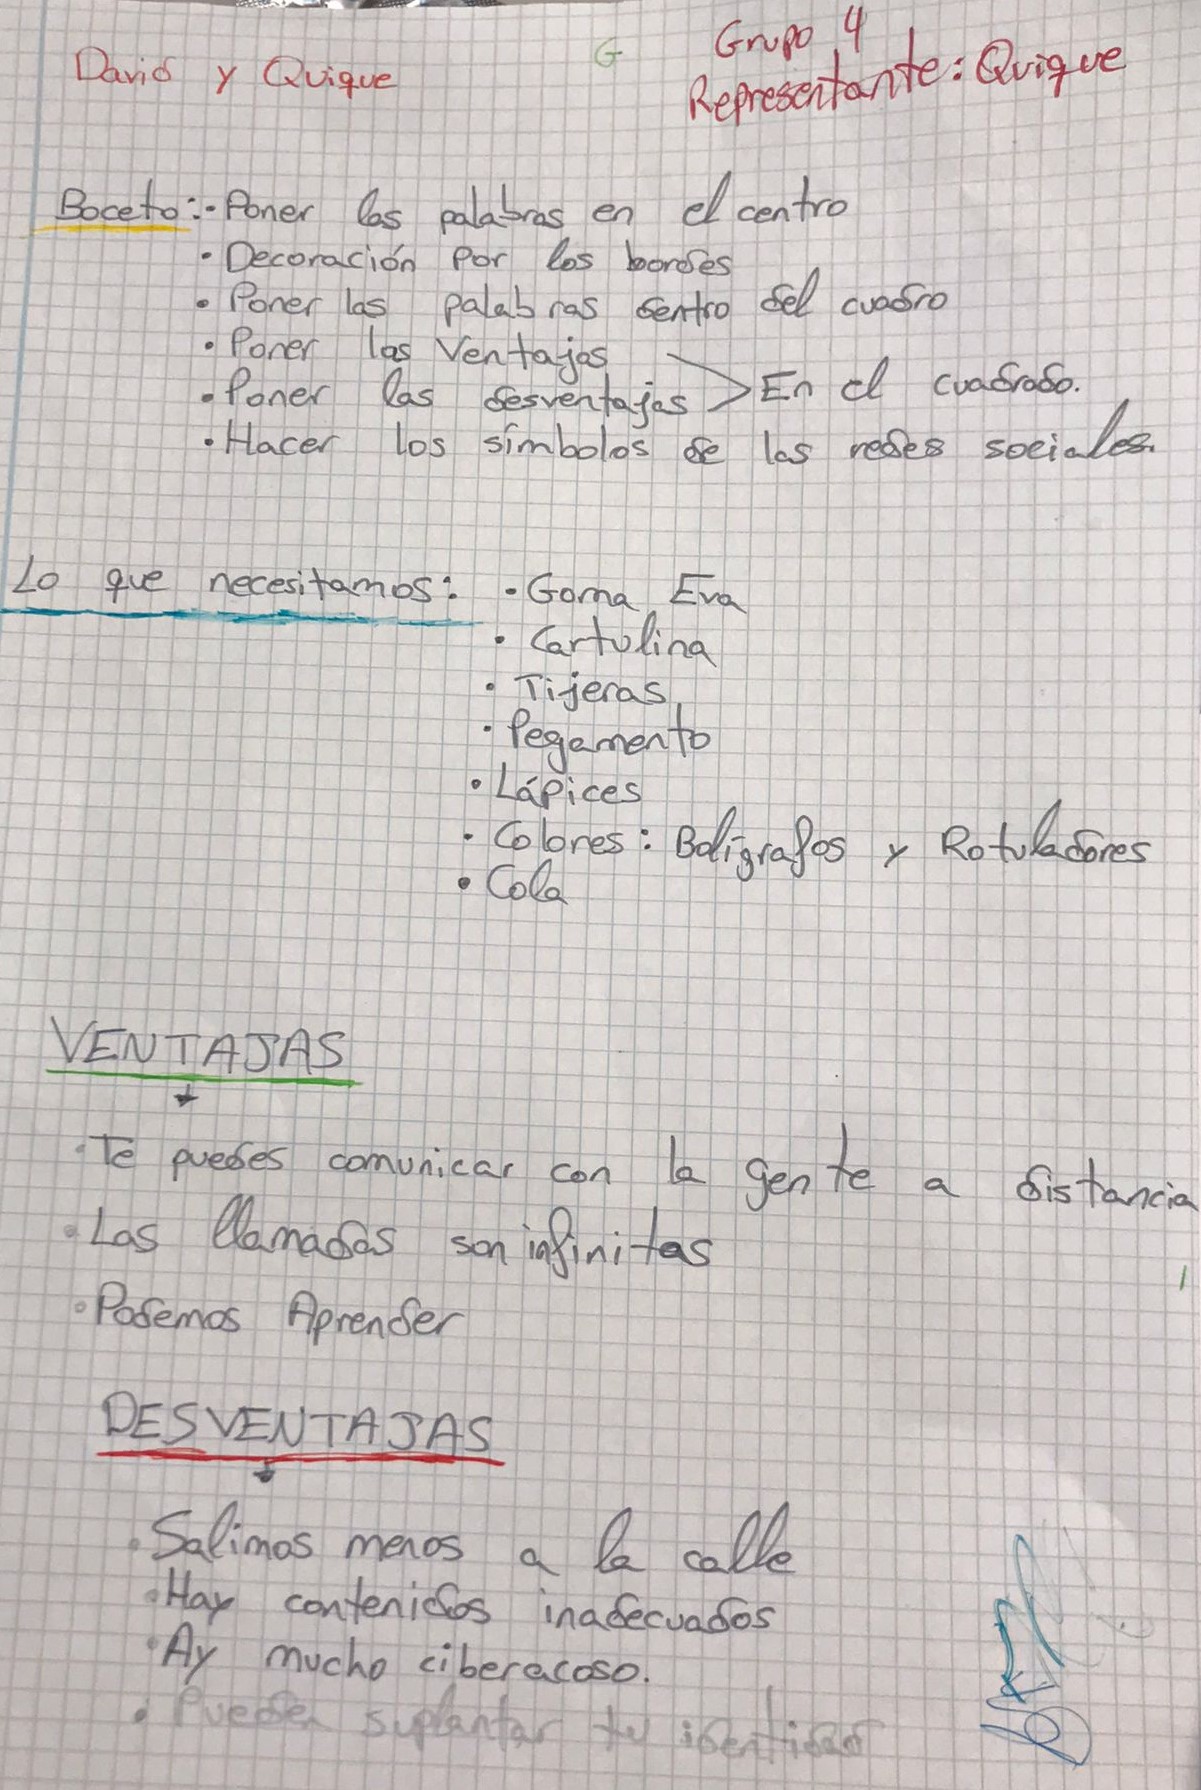 David y Quique
G
Grupo 4
Representante: Quique
Boceto: · Poner las palabras en el centro
· Decoración por los bordes
· Poner las palabras dentro del cuadro
· Poner las Ventajas
· Poner las desventajas > En el cuadrado.
· Hacer los símbolos de las redes sociales.
Lo que necesitamos: · Goma Eva
· Cartulina
· Tijeras
· Pegamento
· Lápices
· Colores: Bolígrafos y Rotuladores
· Cola
VENTAJAS
· Te puedes comunicar con la gente a distancia
· Las llamadas son infinitas
· Podemos Aprender
DESVENTAJAS
· Salimos menos a la calle
· Hay contenidos inadecuados
· Ay mucho ciberacoso.
· Pueden suplantar tu identidad